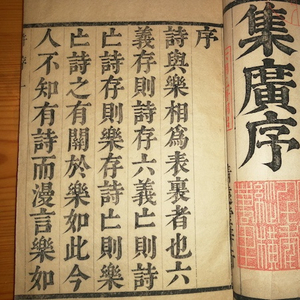 集廣序
序
詩與樂相爲表裏者也六
義存則詩存六義亡則詩
亡詩存則樂存詩亡則樂
亡詩之有關於樂如此今
人不知有詩而漫言樂如